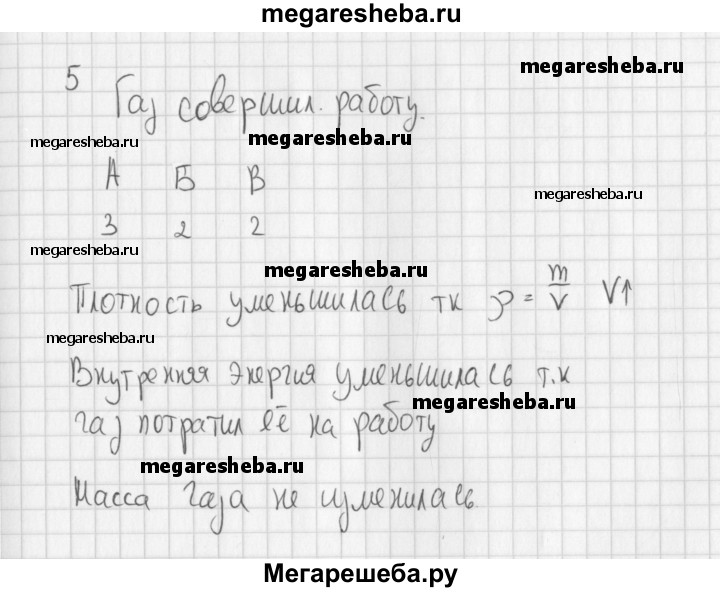 megaresheba.ru
5
megaresheba.ru
Газ совершил. работу.
megaresheba.ru
megaresheba.ru
А Б В
megaresheba.ru
3 2 2
megaresheba.ru
megaresheba.ru
Плотность уменьшилась тк ρ = m/V V↑
megaresheba.ru
Внутренняя энергия уменьшилась т.к
megaresheba.ru
газ потратил её на работу
megaresheba.ru
Масса газа не изменилась.
Мегарешеба.ру